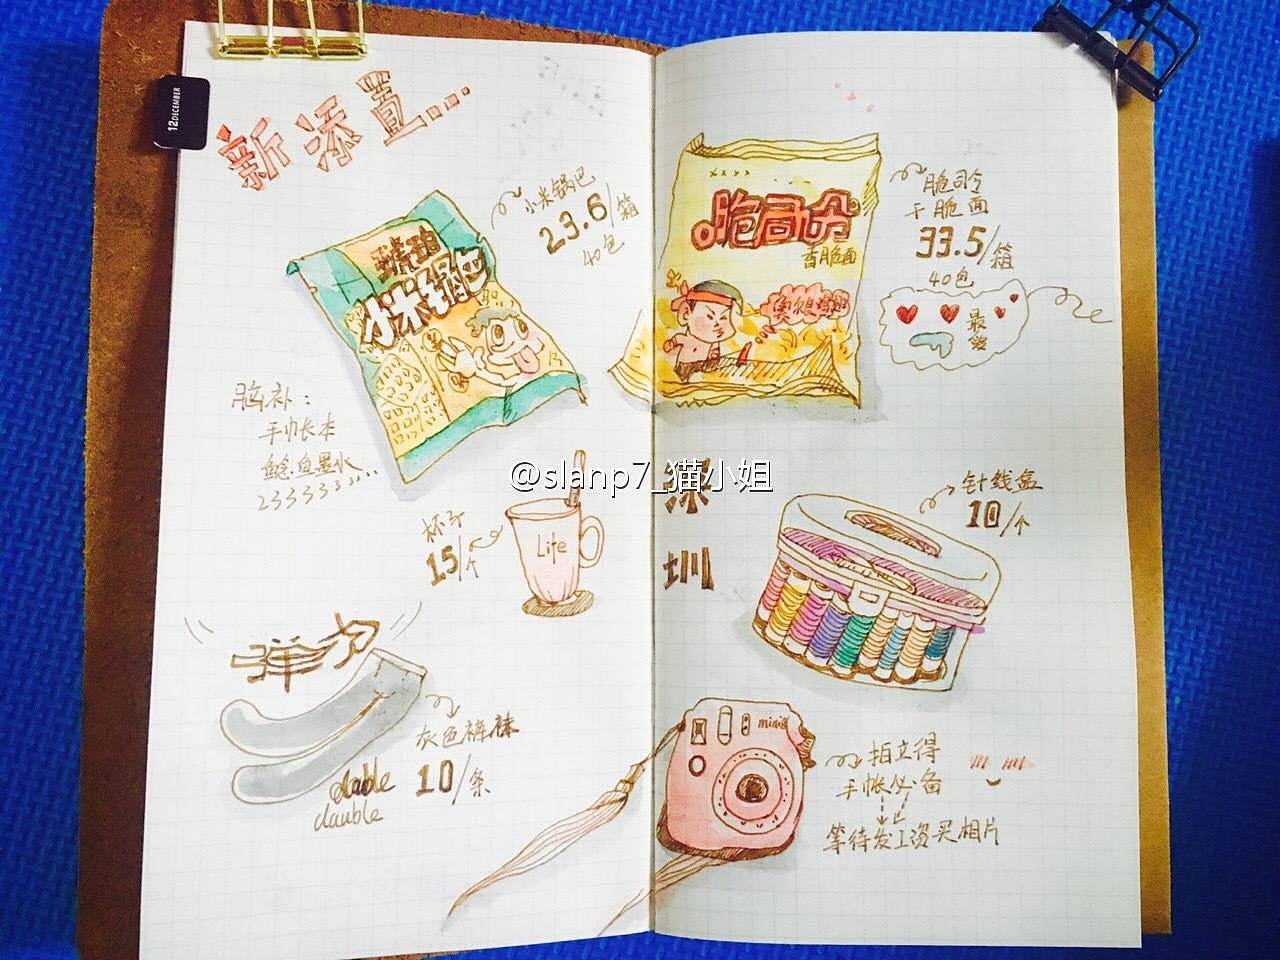 12DECEMBER
新添置...
小米锅巴
23.6/箱
40包
琥珀
小米锅巴
脑补：
手帐长本
鲶鱼墨水...
2333333...
杯子
15/个
Life
弹力
灰色裤袜
10/条
dable
dauble
脆司令
香脆面
脆司令
干脆面
33.5/箱
40包
最爱
@slanp7_猫小姐
深
圳
针线盒
10/个
mini8
拍立得
手帐必备
等待发工资买相片